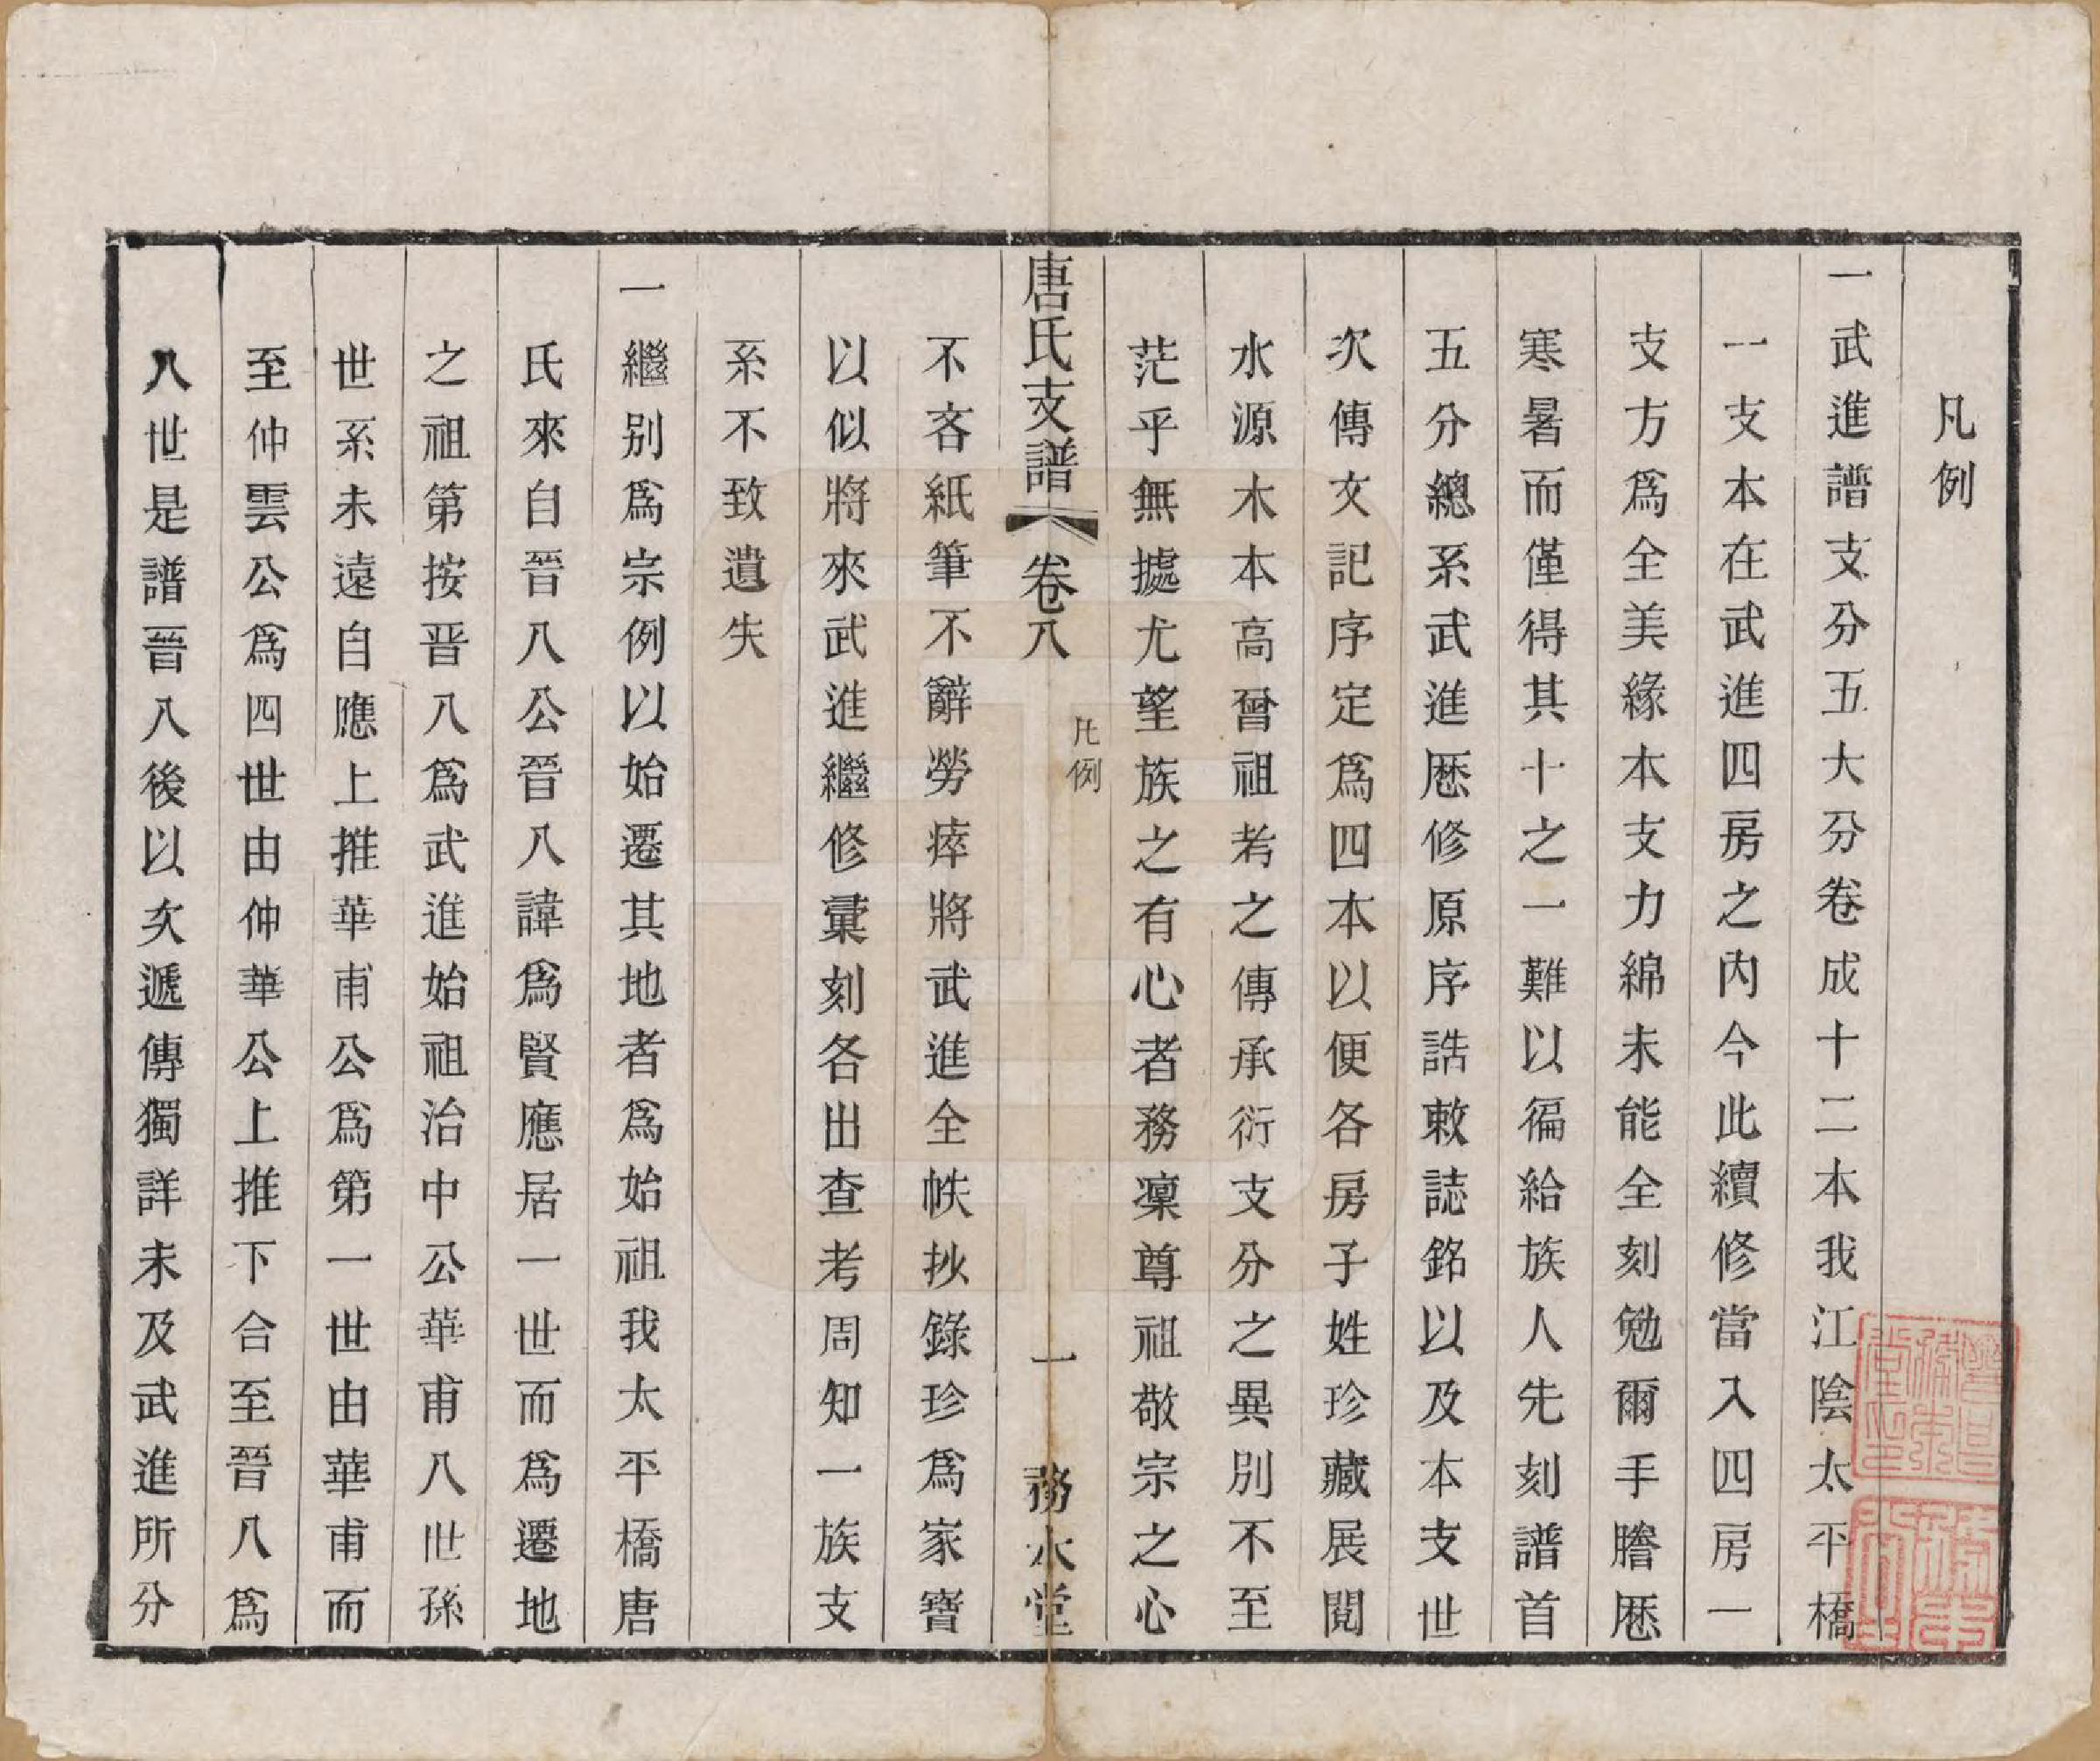 凡例
一武進譜支分五大分卷成十二本我江陰太平橋
一支本在武進四房之內今此續修當入四房一
支方爲全美緣本支力綿未能全刻勉爾手謄厯
寒暑而僅得其十之一難以徧給族人先刻譜首
五分總系武進厯修原序誥敕誌銘以及本支世
次傳文記序定爲四本以便各房子姓珍藏展閱
水源木本高曾祖考之傳承衍支分之異別不至
茫乎無據尤望族之有心者務凜尊祖敬宗之心
唐氏支譜 卷八 凡例 一 務本堂
不吝紙筆不辭勞瘁將武進全帙抄錄珍爲家寶
以似將來武進繼修彙刻各出查考周知一族支
系不致遺失
一繼別爲宗例以始遷其地者爲始祖我太平橋唐
氏來自晉八公晉八諱爲賢應居一世而爲遷地
之祖第按晋八爲武進始祖治中公華甫八世孫
世系未遠自應上推華甫公爲第一世由華甫而
至仲雲公爲四世由仲華公上推下合至晉八爲
八世是譜晉八後以次遞傳獨詳未及武進所分